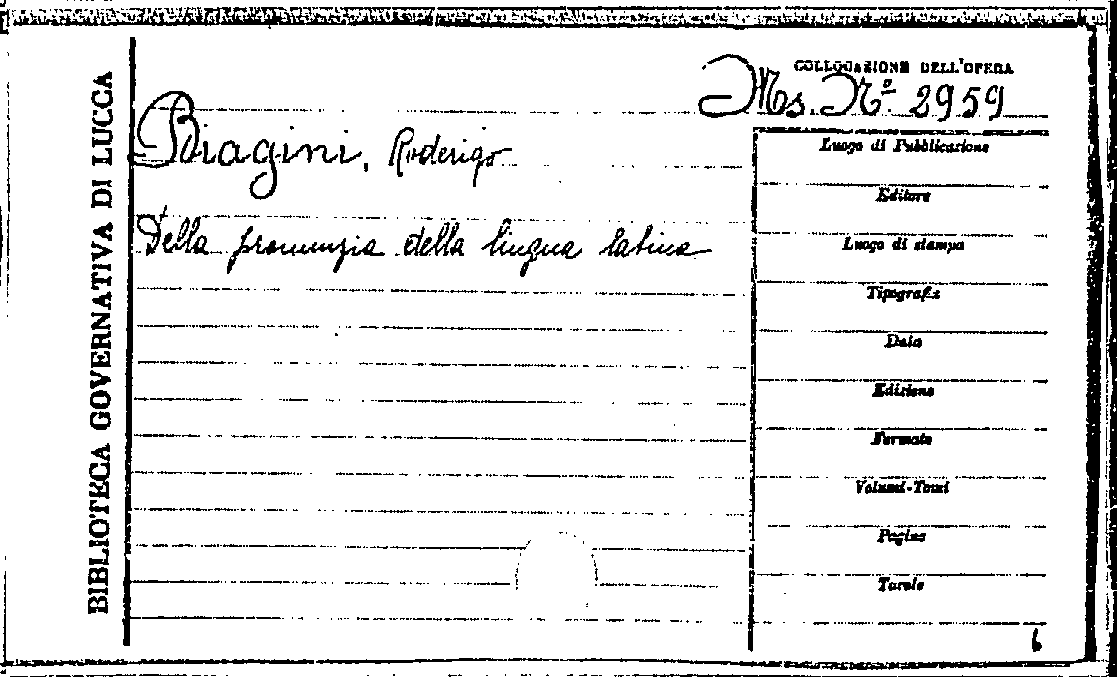 BIBLIOTECA GOVERNATIVA DI LUCCA
COLLOCAZIONE DELL'OPERA
Ms. Nº 2959
Biagini, Roderigo
Della pronunzia della lingua latina
Luogo di Pubblicazione
Editore
Luogo di stampa
Tipografia
Data
Edizione
Formato
Volumi-Tomi
Pagine
Tavole
6